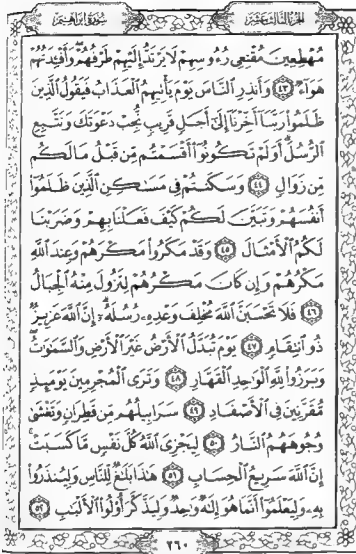 الجزء الثالث عشر سورة إبراهيم
مُهْطِعِينَ مُقْنِعِى رُءُوسِهِمْ لَا يَرْتَدُّ إِلَيْهِمْ طَرْفُهُمْ وَأَفْـِٔدَتُهُمْ
هَوَآءٌ ٤٣ وَأَنذِرِ ٱلنَّاسَ يَوْمَ يَأْتِيهِمُ ٱلْعَذَابُ فَيَقُولُ ٱلَّذِينَ
ظَلَمُوا۟ رَبَّنَآ أَخِّرْنَآ إِلَىٰٓ أَجَلٍ قَرِيبٍ نُّجِبْ دَعْوَتَكَ وَنَتَّبِعِ
ٱلرُّسُلَ أَوَلَمْ تَكُونُوٓا۟ أَقْسَمْتُم مِّن قَبْلُ مَا لَكُم
مِّن زَوَالٍ ٤٤ وَسَكَنتُمْ فِى مَسَـٰكِنِ ٱلَّذِينَ ظَلَمُوٓا۟
أَنفُسَهُمْ وَتَبَيَّنَ لَكُمْ كَيْفَ فَعَلْنَا بِهِمْ وَضَرَبْنَا
لَكُمُ ٱلْأَمْثَالَ ٤٥ وَقَدْ مَكَرُوا۟ مَكْرَهُمْ وَعِندَ ٱللَّهِ
مَكْرُهُمْ وَإِن كَانَ مَكْرُهُمْ لِتَزُولَ مِنْهُ ٱلْجِبَالُ
٤٦ فَلَا تَحْسَبَنَّ ٱللَّهَ مُخْلِفَ وَعْدِهِۦ رُسُلَهُۥٓ إِنَّ ٱللَّهَ عَزِيزٌ
ذُو ٱنتِقَامٍ ٤٧ يَوْمَ تُبَدَّلُ ٱلْأَرْضُ غَيْرَ ٱلْأَرْضِ وَٱلسَّمَـٰوَٰتُ
وَبَرَزُوا۟ لِلَّهِ ٱلْوَٰحِدِ ٱلْقَهَّارِ ٤٨ وَتَرَى ٱلْمُجْرِمِينَ يَوْمَئِذٍ
مُّقَرَّنِينَ فِى ٱلْأَصْفَادِ ٤٩ سَرَابِيلُهُم مِّن قَطِرَانٍ وَتَغْشَىٰ
وُجُوهَهُمُ ٱلنَّارُ ٥٠ لِيَجْزِىَ ٱللَّهُ كُلَّ نَفْسٍ مَّا كَسَبَتْ
إِنَّ ٱللَّهَ سَرِيعُ ٱلْحِسَابِ ٥١ هَـٰذَا بَلَـٰغٌ لِّلنَّاسِ وَلِيُنذَرُوا۟
بِهِۦ وَلِيَعْلَمُوٓا۟ أَنَّمَا هُوَ إِلَـٰهٌ وَٰحِدٌ وَلِيَذَّكَّرَ أُو۟لُوا۟ ٱلْأَلْبَـٰبِ ٥٢
٢٦٠